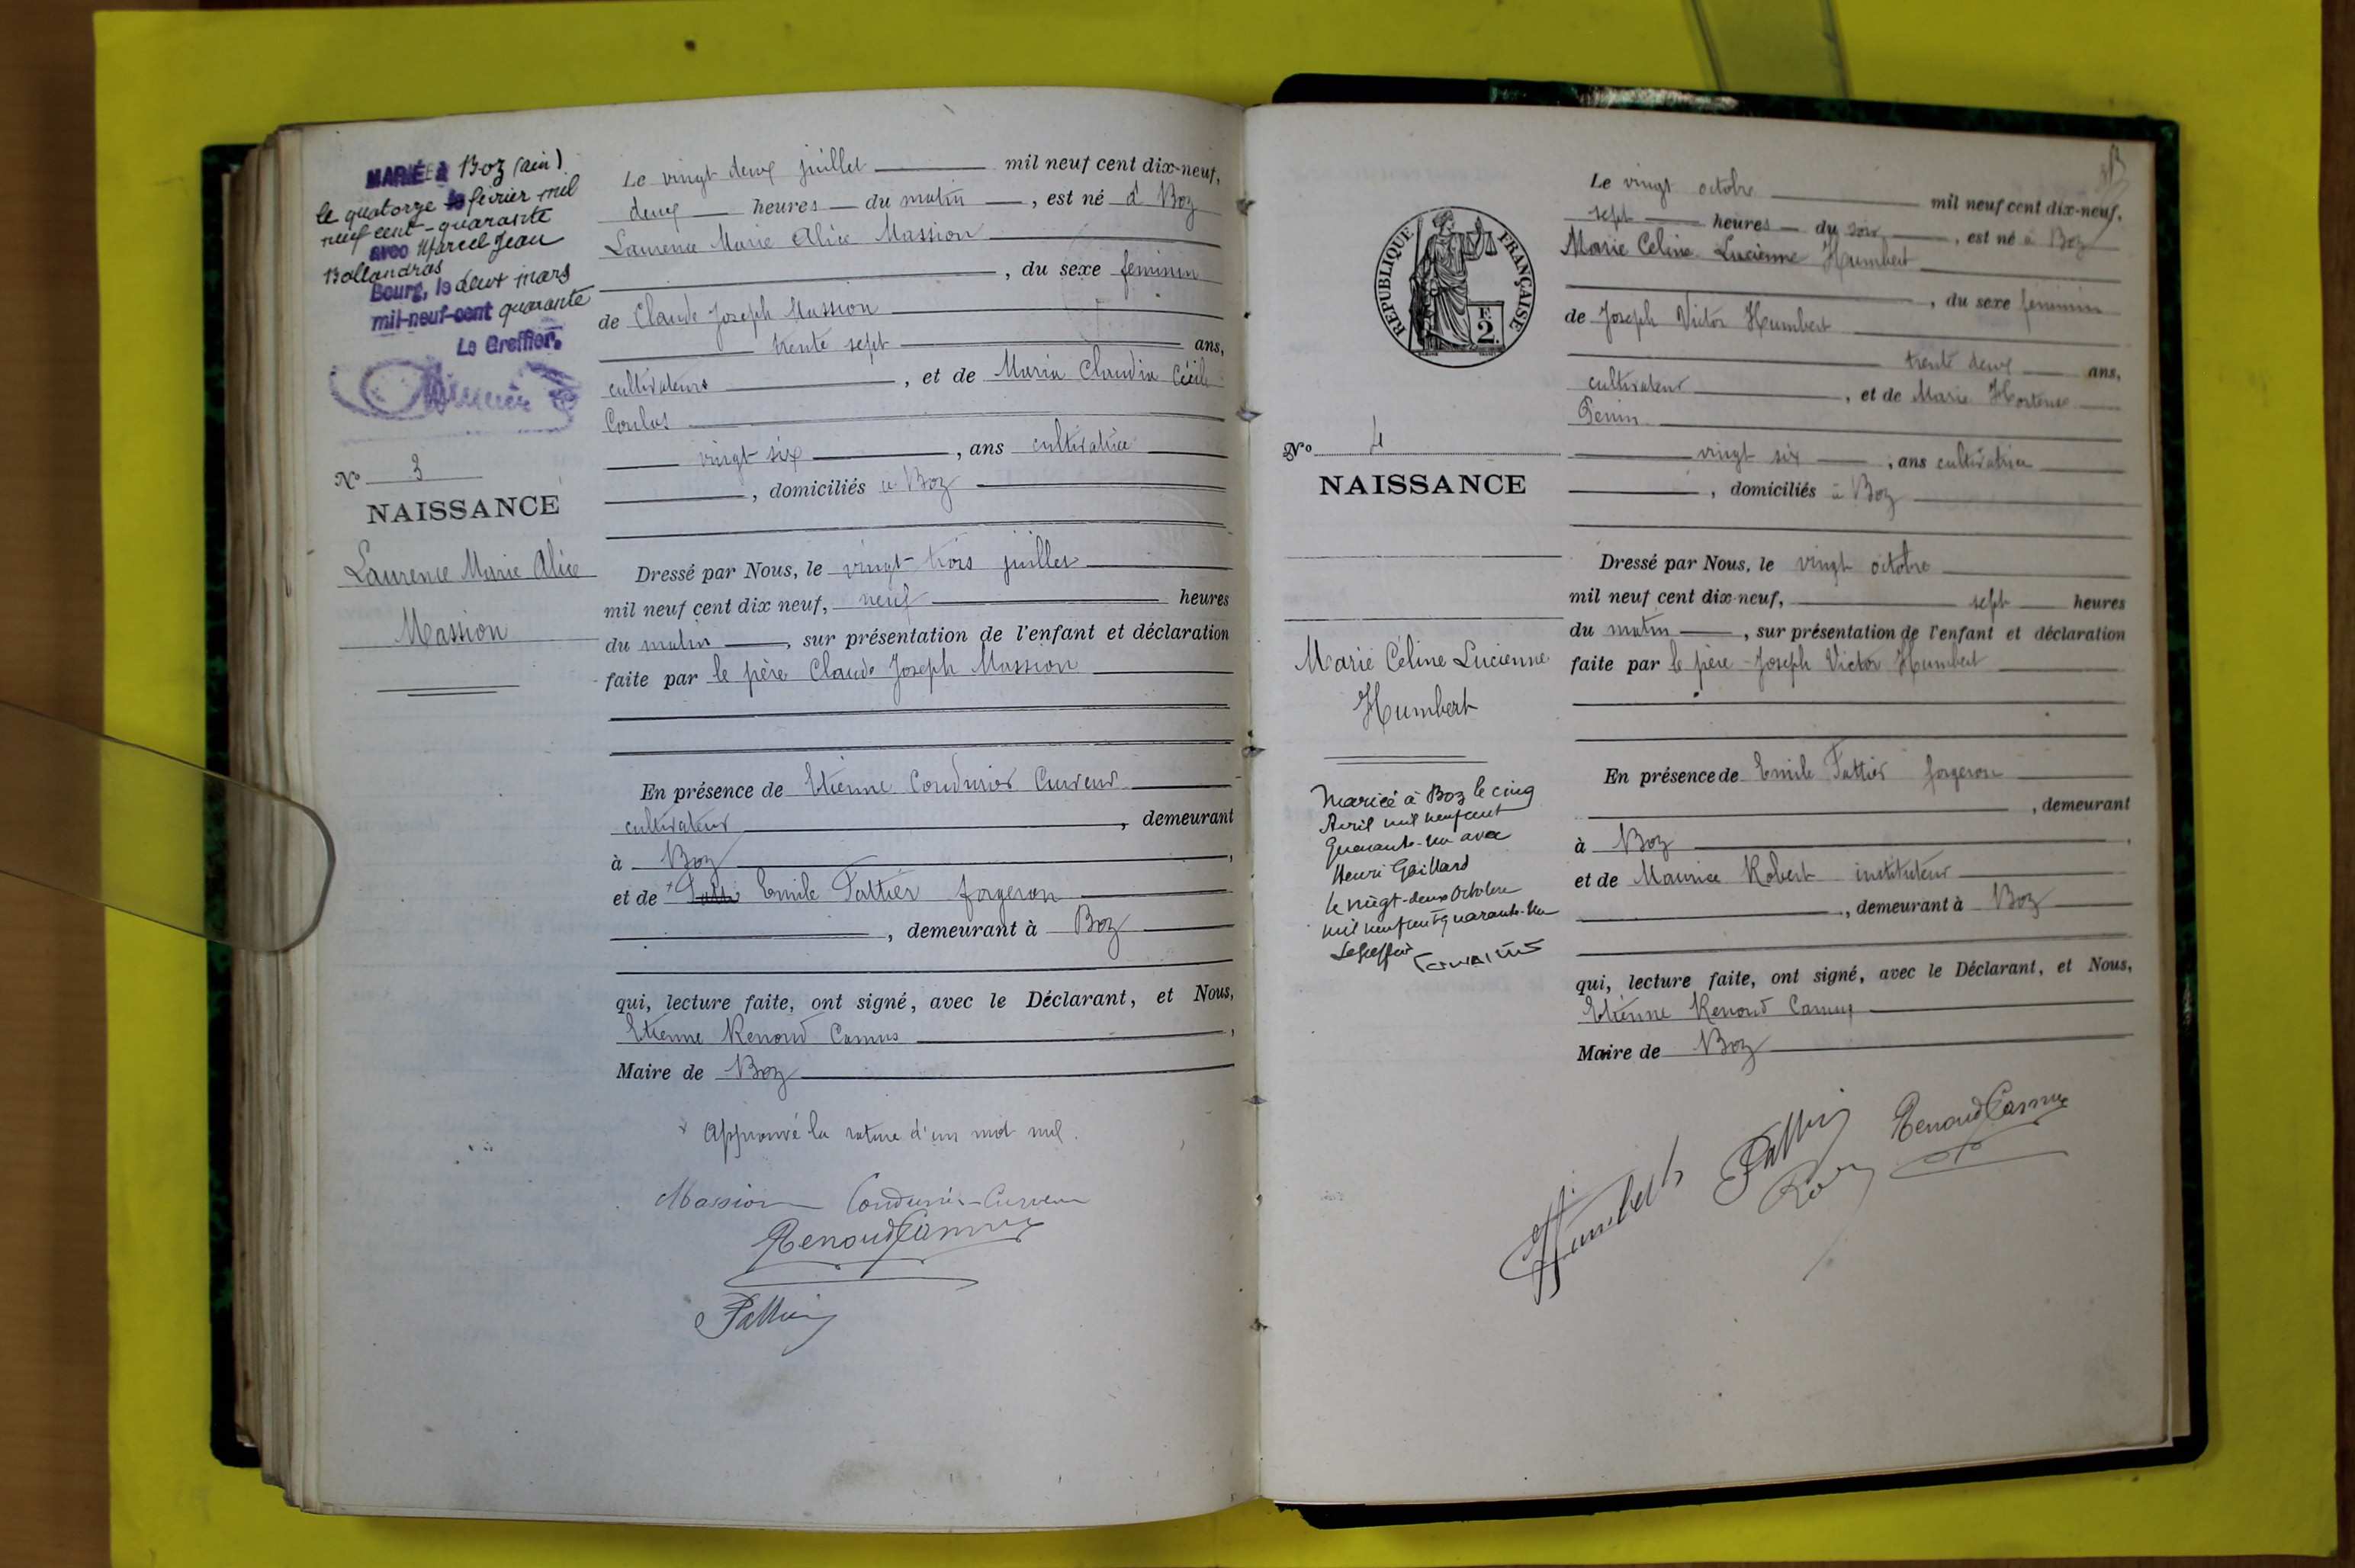 MARIÉE à Boz (ain)
le quatorze février mil
neuf cent-quarante
avec Marcel Jean
Ballandras
Bourg, le deux mars
mil-neuf-cent quarante
Le Greffier,
No 3
NAISSANCE
Laurence Marie Alice
Massion
Le vingt deux juillet mil neuf cent dix-neuf,
deux heures du matin, est né à Boz
Laurence Marie Alice Massion
, du sexe feminin
de Claude Joseph Massion
trente sept ans,
cultivateur, et de Maria Claudia Cécile
Coulas
vingt six, ans cultivatrice
, domiciliés à Boz
Dressé par Nous, le vingt-trois juillet
mil neuf cent dix neuf, neuf heures
du matin, sur présentation de l'enfant et déclaration
faite par le père Claude Joseph Massion
En présence de Etienne Condurier Curveur
cultivateur, demeurant
à Boz,
et de Emile Pattier forgeron
, demeurant à Boz
qui, lecture faite, ont signé, avec le Déclarant, et Nous,
Etienne Renoud Camus,
Maire de Boz
Approuvé la rature d'un mot nul.
Massion Condurier-Curveur
Renoud Camus
Pattier
RÉPUBLIQUE FRANÇAISE
F.
2.
No 4
NAISSANCE
Marie Céline Lucienne
Humbert
Mariée à Boz le cinq
Avril mil neuf cent
Quarante-un avec
Henri Gaillard
le vingt-deux Octobre
mil neuf cent quarante-un
Le Greffier
Le vingt octobre mil neuf cent dix-neuf,
sept heures du soir, est né à Boz
Marie Céline Lucienne Humbert
, du sexe féminin
de Joseph Victor Humbert
trente deux ans,
cultivateur, et de Marie Hortense
Penin
vingt six, ans cultivatrice
, domiciliés à Boz
Dressé par Nous, le vingt octobre
mil neuf cent dix-neuf, sept heures
du matin, sur présentation de l'enfant et déclaration
faite par le père Joseph Victor Humbert
En présence de Emile Pattier forgeron
, demeurant
à Boz,
et de Maurice Robert instituteur
, demeurant à Boz
qui, lecture faite, ont signé, avec le Déclarant, et Nous,
Etienne Renoud Camus
Maire de Boz
Humbert Pattier Renoud Camus